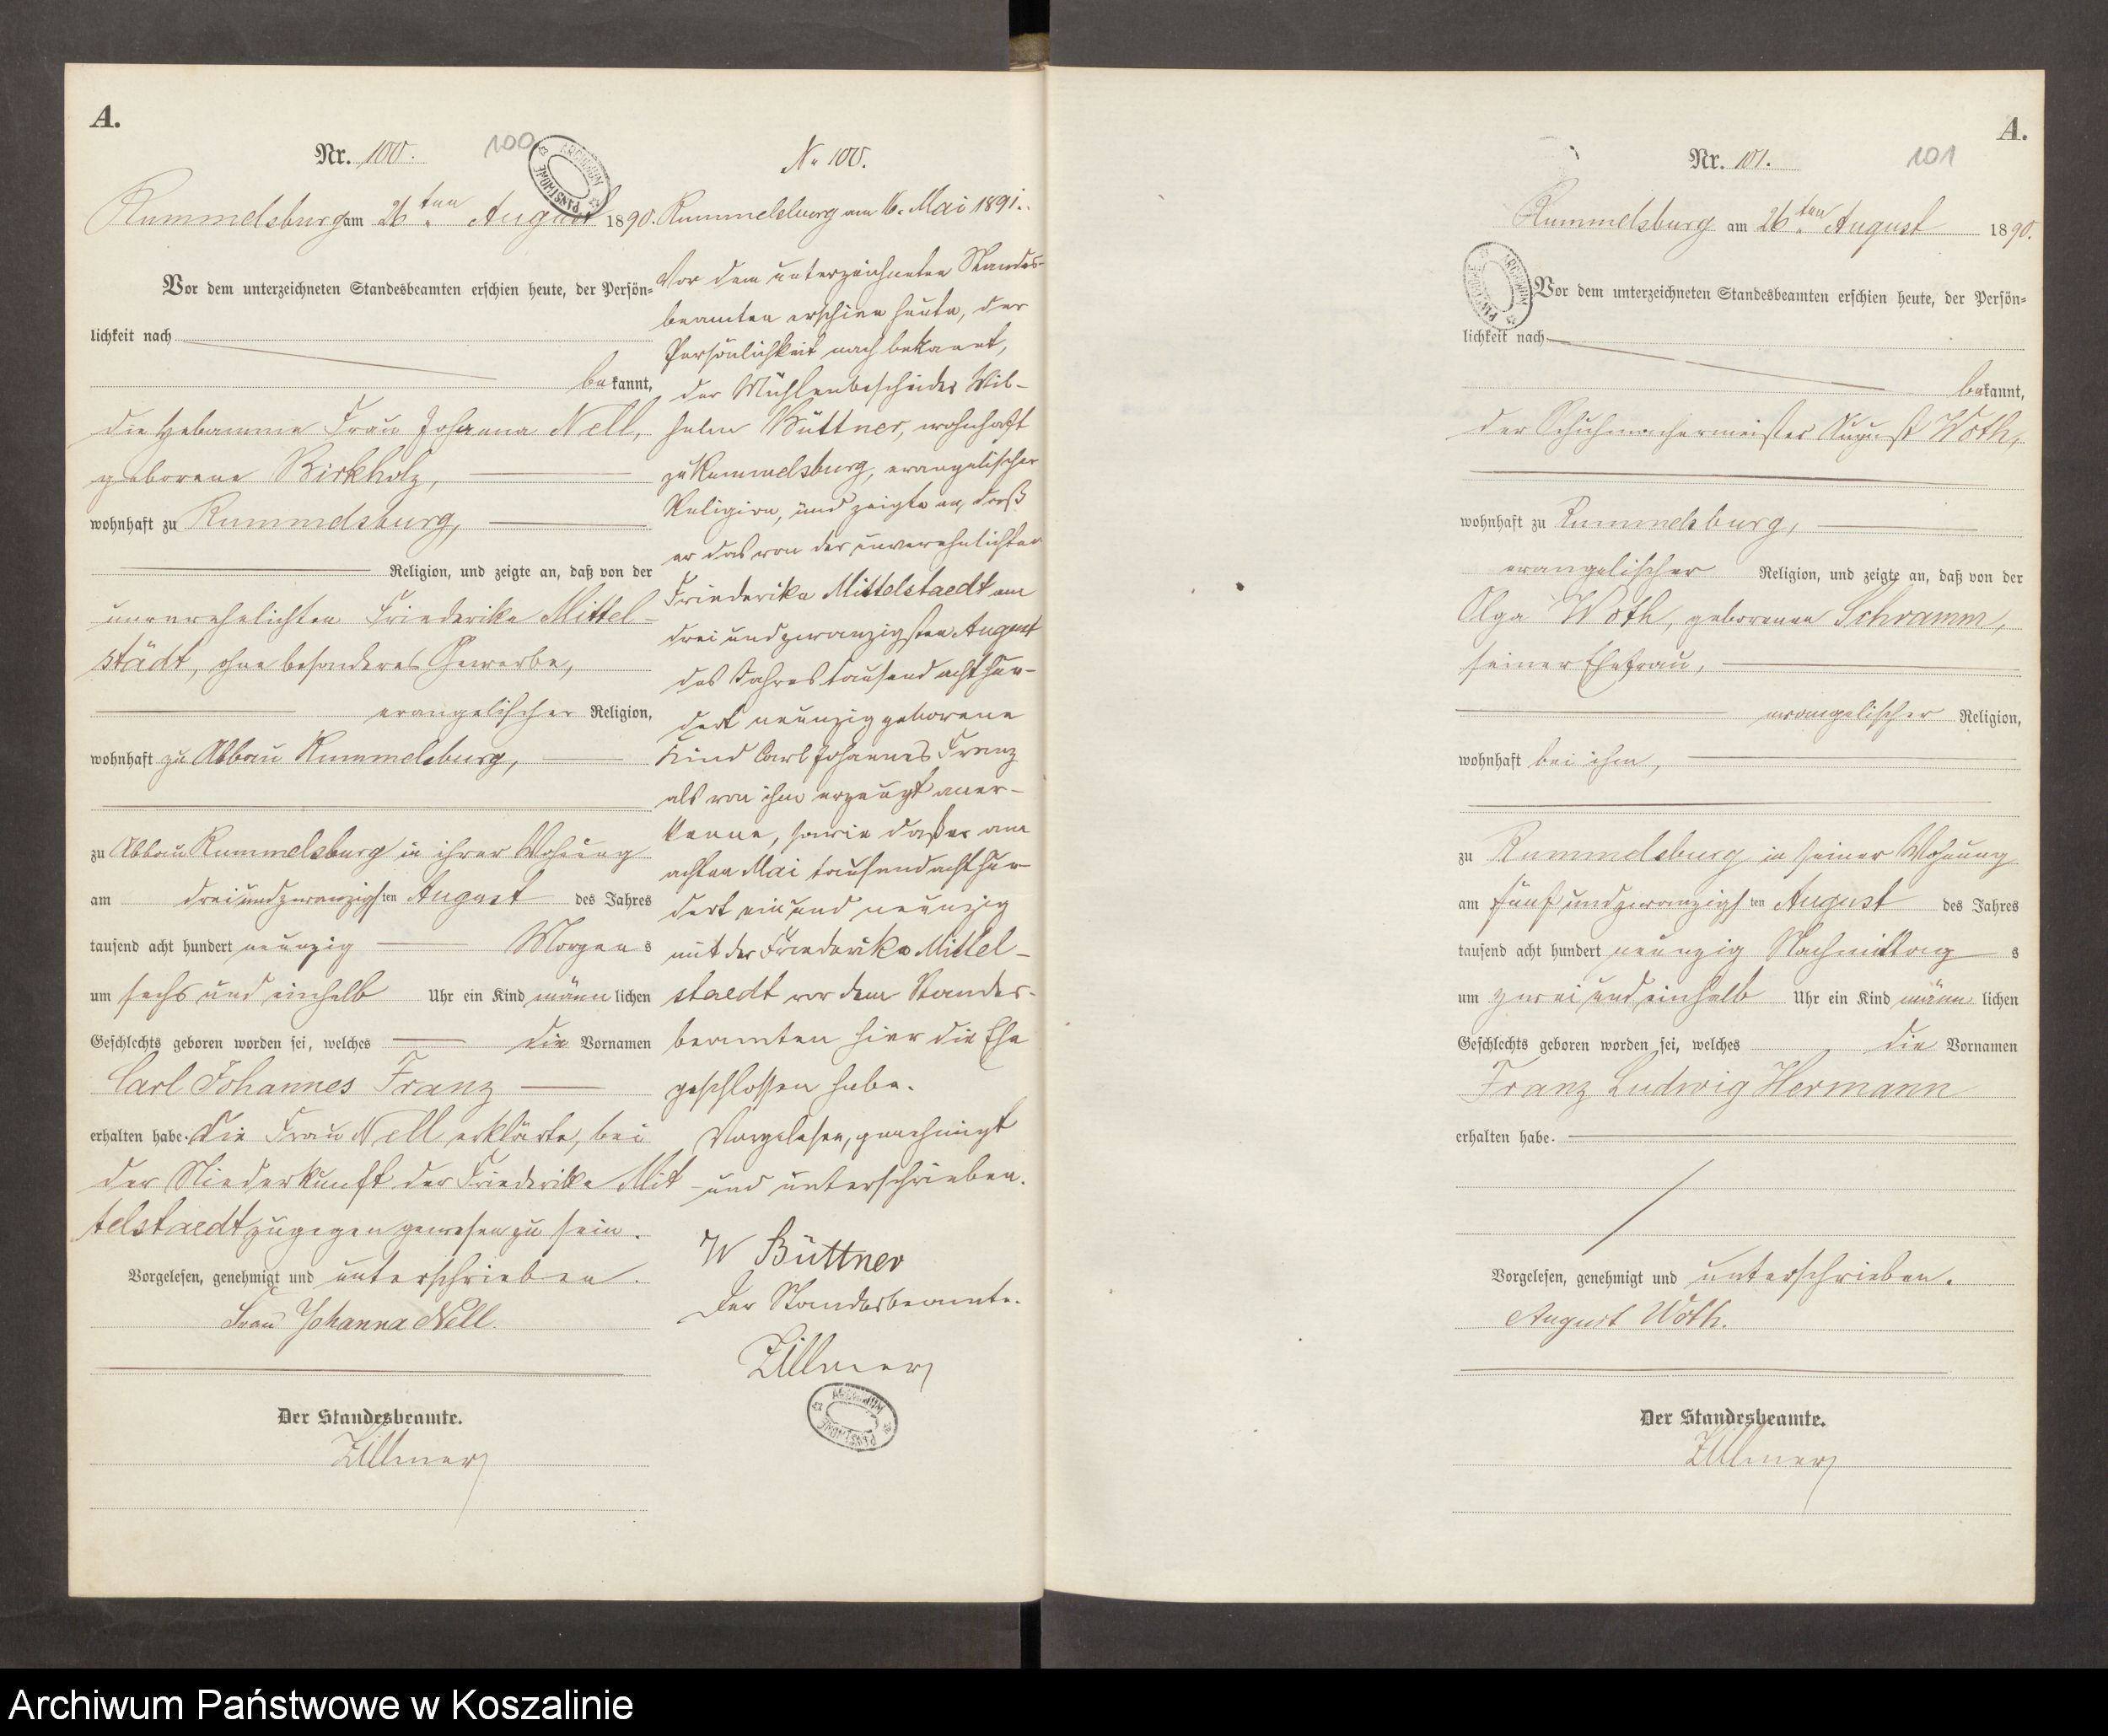 A.
Nr. 100.
100
Rummelsburg am 26ten August 1890.
Vor dem unterzeichneten Standesbeamten erschien heute, der Persön=
lichkeit nach
bekannt,
die Hebamme Frau Johanna Nell,
geborene Birkholz,
wohnhaft zu Rummelsburg,
Religion, und zeigte an, daß von der
unverehelichten Friederike Mittel-
städt, ohne besonderes Gewerbe,
evangelischer Religion,
wohnhaft zu Abbau Rummelsburg,
zu Abbau Rummelsburg in ihrer Wohnung
am dreiundzwanzigsten August des Jahres
tausend acht hundert neunzig Morgens
um sechs und einhalb Uhr ein Kind männlichen
Geschlechts geboren worden sei, welches die Vornamen
Carl Johannes Franz
erhalten habe. Die Frau Nell erklärte, bei
der Niederkunft der Friederike Mit-
telstaedt zugegen gewesen zu sein.
Vorgelesen, genehmigt und unterschrieben.
Frau Johanna Nell.
Der Standesbeamte.
Zillmer
ARCHIWUM PAŃSTWOWE
No 100.
Rummelsburg am 16. Mai 1891.
Vor dem unterzeichneten Standes-
beamten erschien heute, der
Persönlichkeit nach bekannt,
der Mühlenbescheider Wil-
helm Büttner, wohnhaft
zu Rummelsburg, evangelischer
Religion, und zeigte an, daß
er das von der unverehelichten
Friederike Mittelstaedt am
drei und zwanzigsten August
des Jahres tausend acht hun-
dert neunzig geborene
Kind Carl Johannes Franz
als von ihm erzeugt aner-
kenne, sowie daß er am
achten Mai tausend acht hun-
dert ein und neunzig
mit der Friederike Mittel-
staedt vor dem Standes-
beamten hier die Ehe
geschlossen habe.
Vorgelesen, genehmigt
und unterschrieben.
W Büttner
Der Standesbeamte.
Zillmer
ARCHIWUM PAŃSTWOWE
A.
Nr. 101.
101
Rummelsburg am 26ten August 1890.
ARCHIWUM PAŃSTWOWE
Vor dem unterzeichneten Standesbeamten erschien heute, der Persön=
lichkeit nach
bekannt,
der Schuhmachermeister August Woth,
wohnhaft zu Rummelsburg,
evangelischer Religion, und zeigte an, daß von der
Olga Woth, geborenen Schramm,
seiner Ehefrau,
evangelischer Religion,
wohnhaft bei ihm,
zu Rummelsburg in seiner Wohnung
am fünf und zwanzigsten August des Jahres
tausend acht hundert neunzig Nachmittags
um zwei und einhalb Uhr ein Kind männlichen
Geschlechts geboren worden sei, welches die Vornamen
Franz Ludwig Hermann
erhalten habe.
Vorgelesen, genehmigt und unterschrieben.
August Woth.
Der Standesbeamte.
Zillmer
Archiwum Państwowe w Koszalinie